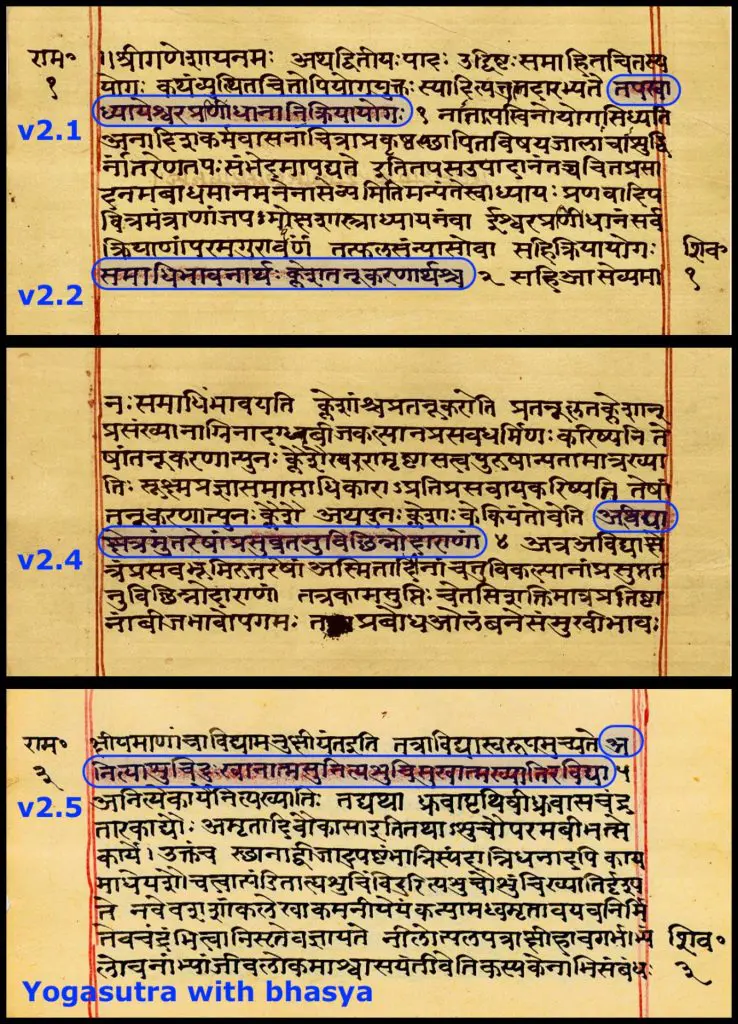 राम॰ ॥श्रीगणेशायनमः अथद्वितीयःपादः उद्दिष्टःसमाहितचित्तस्य
१ योगः कथंव्युत्थितचित्तोपियोगयुक्तः स्यादित्येतदारभ्यते तपस्वा
v2.1 ध्यायेश्वरप्रणीधानानिक्रियायोगः १ नातपस्विनोयोगःसिध्यति
अनादिकर्मवासना विषयजाला
र्नांतरेणतपःसंभेदमापद्यते इतितपसउपादानंतच्चचित्तप्रसा
दनमबाधमानमनेनासेव्यमितिमन्यंतेस्वाध्यायः प्रणवादिप
वित्रमंत्राणांजपः मोक्षशास्त्राध्यायनंवा ईश्वरप्रणीधानंसर्व
क्रियाणांपरमगुरावर्पणं तत्फलसंन्यासोवा सहिक्रियायोगः शिव॰
v2.2 समाधिभावनार्थः क्लेशतनूकरणार्थश्च २ सहिआसेव्यमा १
नःसमाधिंभावयति क्लेशांश्चप्रतनूकरोति प्रतनूकृतक्लेशान्
प्रसंख्यानाग्निनादग्धबीजकल्पानप्रसवधर्मिणःकरिष्यति ते
षांतनूकरणात्पुनः क्लेशैरपरामृष्टासत्वपुरुषान्यतामात्रख्या
तिः सूक्ष्मप्रज्ञासमाप्ताधिकाराऽप्रतिप्रसवायकरिष्यति तेषां
तनूकरणात्पुनः क्लेशै अथपुनःक्लेशाःकेकियंतोवेति अविद्या
v2.4 क्षेत्रमुत्तरेषांप्रसुप्ततनुविछिन्नोदाराणां ४ अत्रअविद्याक्षे
त्रंप्रसवभूमिरुत्तरेषां अस्मितादिनां चतुर्विकल्पानांप्रसुप्तत
नुविछिन्नोदाराणां तत्रकाप्रसुप्तिः चेतसिशक्तिमात्रप्रतिष्ठा
नांबीजभावोपगमः प्रबोधआलंबनेसंमुखीभावः
राम॰ क्षीयमाणांचाविद्यामनुक्षीयंतइति तत्राविद्यास्वरूपमुच्यते अ
३ नित्याशुचिदुःखानात्मसुनित्यशुचिसुखात्मख्यातिरविद्या ५
v2.5 अनित्येकार्येनित्यख्यातिः तद्यथा ध्रवापृथिवीध्रवासचंद्र
तारकाद्यौः अमृतादिवौकासइतितथाऽशुचौपरमबीभत्से
काये। उक्तंच स्छानाद्बीजादुपष्टंभान्निस्पंदान्निधनादपि काय
माधेयशौचत्वात्पंडिताह्यशुचिंविदुरित्यशुचौशुचिख्यातिर्दृश्य
ते नवेवशशांकलेखाकमनीयेयंकन्यामध्वमृतावयवनिर्मि
तेवचंद्रंभित्वानिसृतेवज्ञायते नीलोत्पलपत्राक्षीहावगर्भाभ्यां शिव॰
लोचनाभ्यांजीवलोकमाश्वासयंतीवेतिकस्यकेनाभिसंबंधः ३
Yogasutra with bhasya